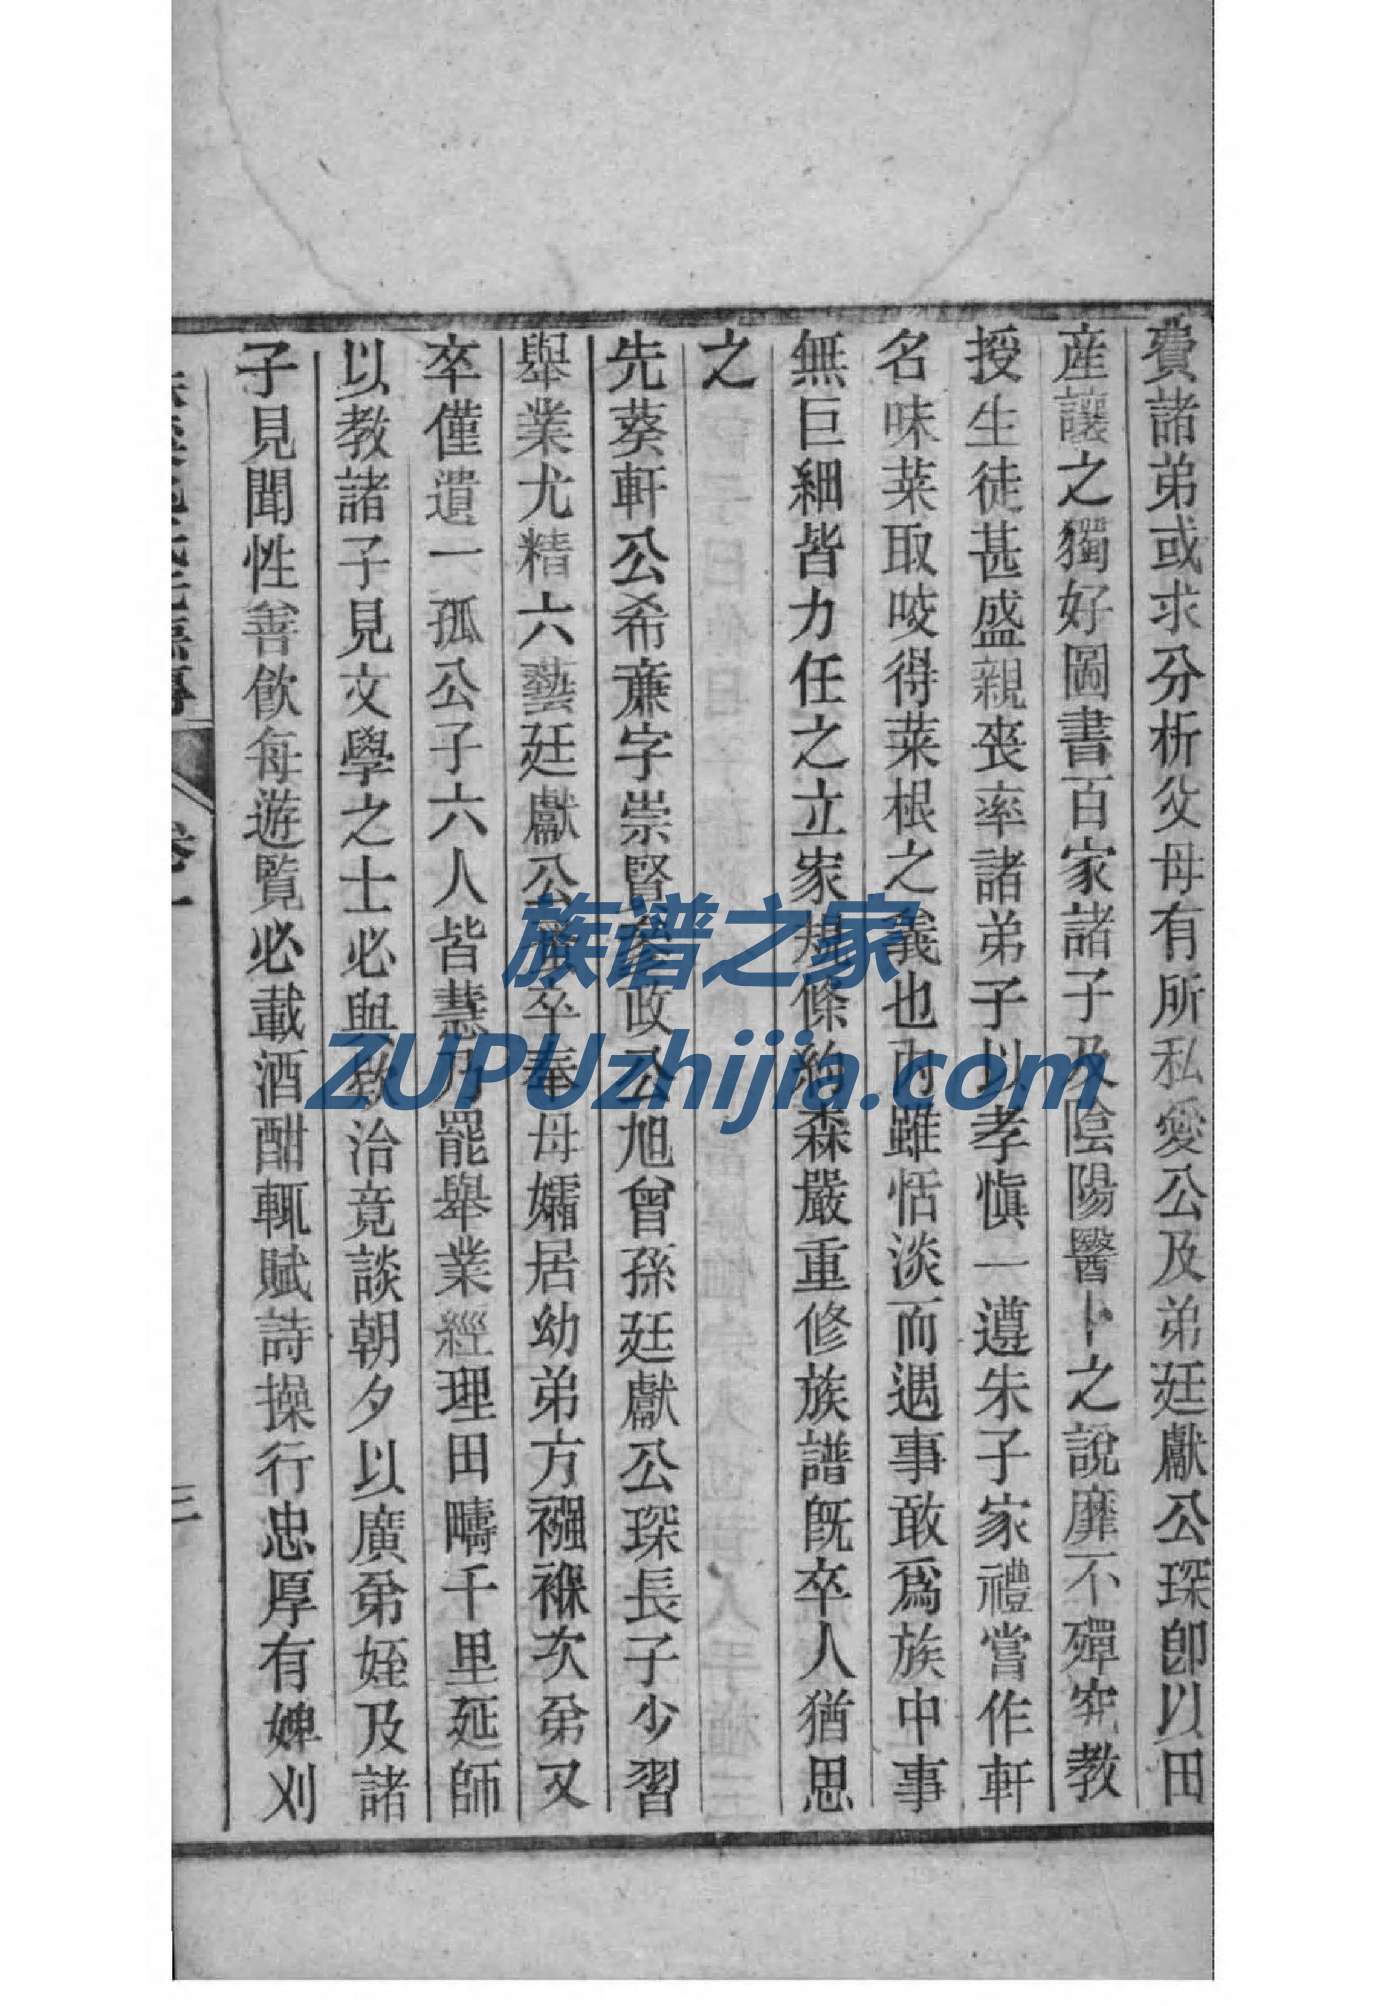 費諸弟或求分析父母有所私愛公及弟廷獻公琛卽以田
産讓之獨好圖書百家諸子及陰陽醫卜之說靡不殫究教
授生徒甚盛親喪率諸弟子以孝愼一遵朱子家禮嘗作軒
名味菜取咬得菜根之義也而雖恬淡而遇事敢爲族中事
無巨細皆力任之立家規條約森嚴重修族譜旣卒人猶思
之
先葵軒公希亷字崇賢參政公旭曾孫廷獻公琛長子少習
舉業尤精六藝廷獻公卒奉母孀居幼弟方襁褓次弟又
卒僅遺一孤公子六人皆慧乃罷舉業經理田疇千里延師
以教諸子見文學之士必與款治竟談朝夕以廣弟姪及諸
子見聞性善飲每遊覽必載酒酣輒賦詩操行忠厚有婢刈
卷一
三
族谱之家
ZUPUzhijia.com